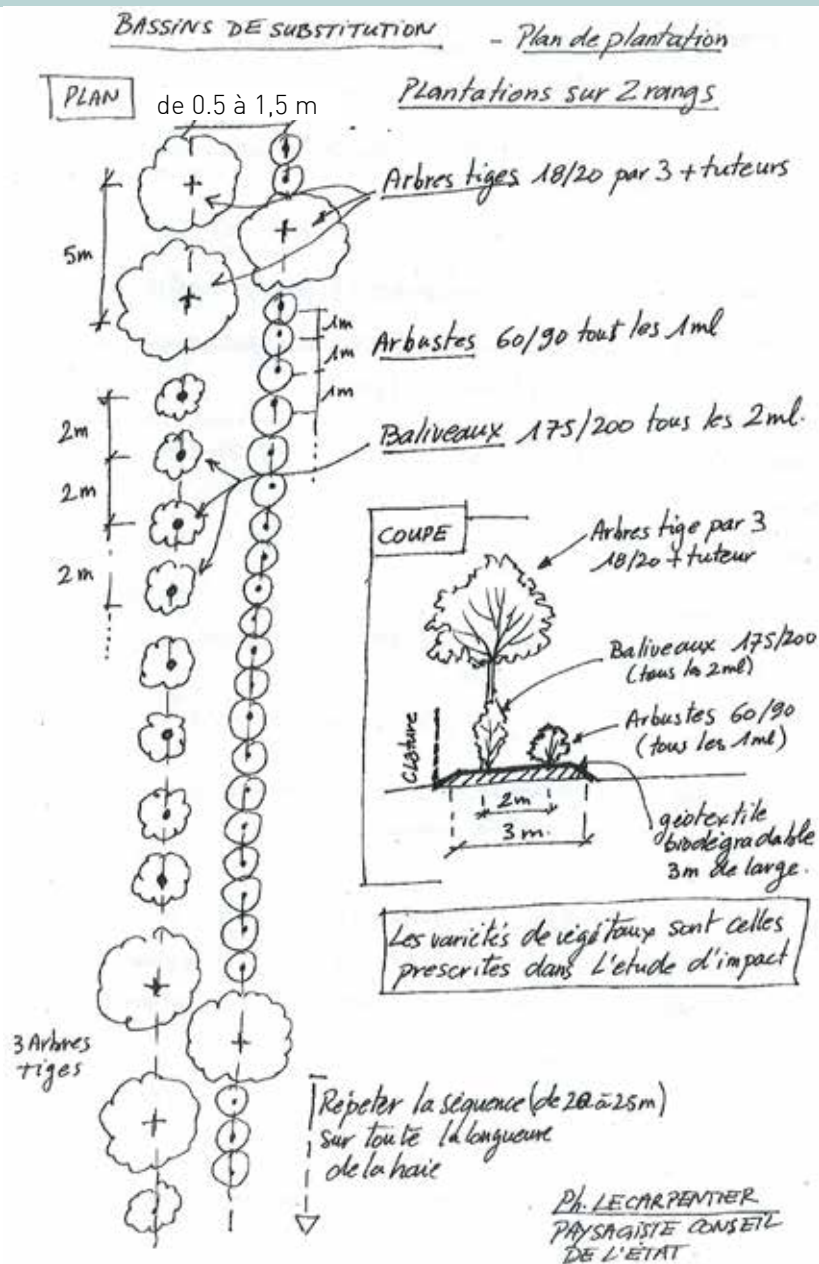 BASSINS DE SUBSTITUTION - Plan de plantation
PLAN
de 0.5 à 1,5 m
Plantations sur 2 rangs
Arbres tiges 18/20 par 3 + tuteurs
5m
1m
1m
1m
Arbustes 60/90 tout les 1ml
2m
2m
2m
Baliveaux 175/200 tous les 2ml.
COUPE
Arbres tige par 3
18/20 + tuteur
Baliveaux 175/200
(tous les 2ml)
Arbustes 60/90
(tous les 1ml)
Clôture
2m
3 m.
géotextile
biodégradable
3m de large.
Les variétés de végétaux sont celles
prescrites dans L'étude d'impact
3 Arbres
tiges
Répéter la séquence (de 20 à 25m)
sur toute la longueure
de la haie
Ph. LECARPENTIER
PAYSAGISTE CONSEIL
DE L'ÉTAT